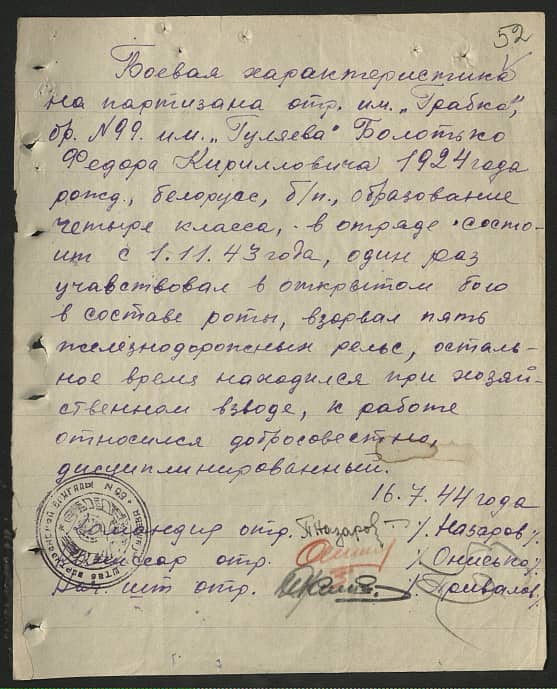 52
Боевая характеристика
на партизана отр. им. „Грабко",
бр. N 99. им. „Гуляева" Болотько
Федора Кирилловича 1924 года
рожд., белорусс, б/п., образование
четыре класса, - в отряде состо-
ит с 1.11.43 года, один раз
учавствовал в открытом бою
в составе роты, взорвал пять
железнодорожных рельс, осталь-
ное время находился при хозяй-
ственном взводе, к работе
относился добросовестно,
дисциплинированный.
16.7.44 года
Командир отр. ПНазаров - /. Назаров /.
Комиссар отр. /. Онисько /
Нач шт отр. /. Привалов /